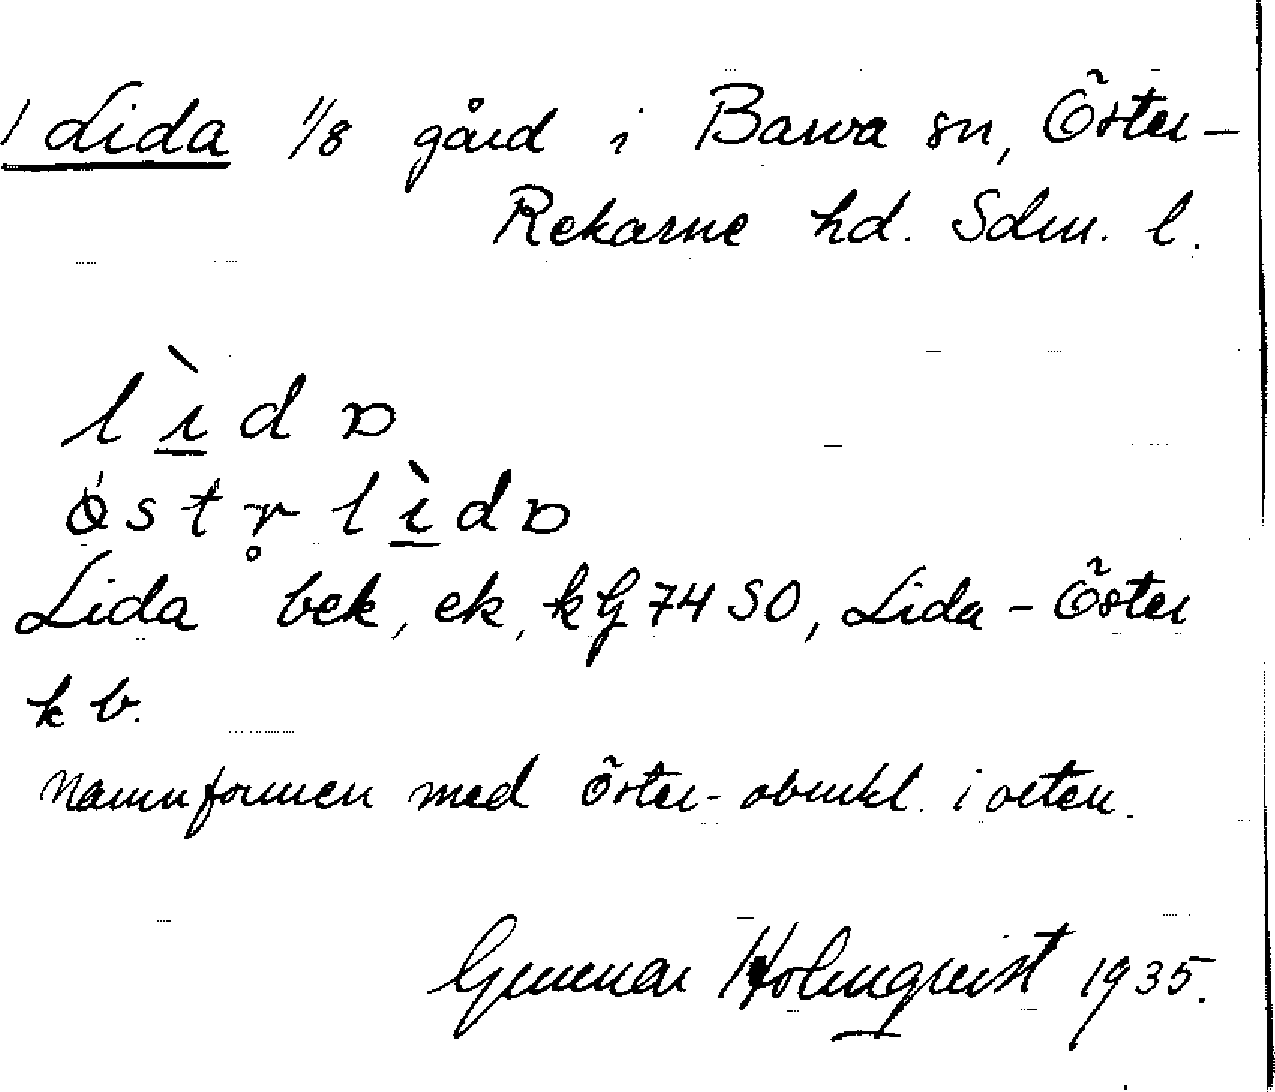 1 Lida 1/8 gård i Barva sn, Öster-
Rekarne hd. Sdm. l.
lìdɒ
östr̥lìdɒ
Lida bek, ek, kG 74 SO, Lida-Öster
kb.
Namnformen med Öster- obrukl. i orten.
Gunnar Holmqvist 1935.